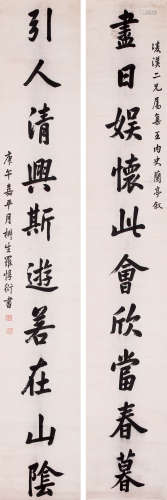 盡日娛懷此會欣當春暮
淩漢二兄屬集王內史蘭亭敘
引人清興斯遊若在山陰
庚午嘉平月樹生羅惇㬊書